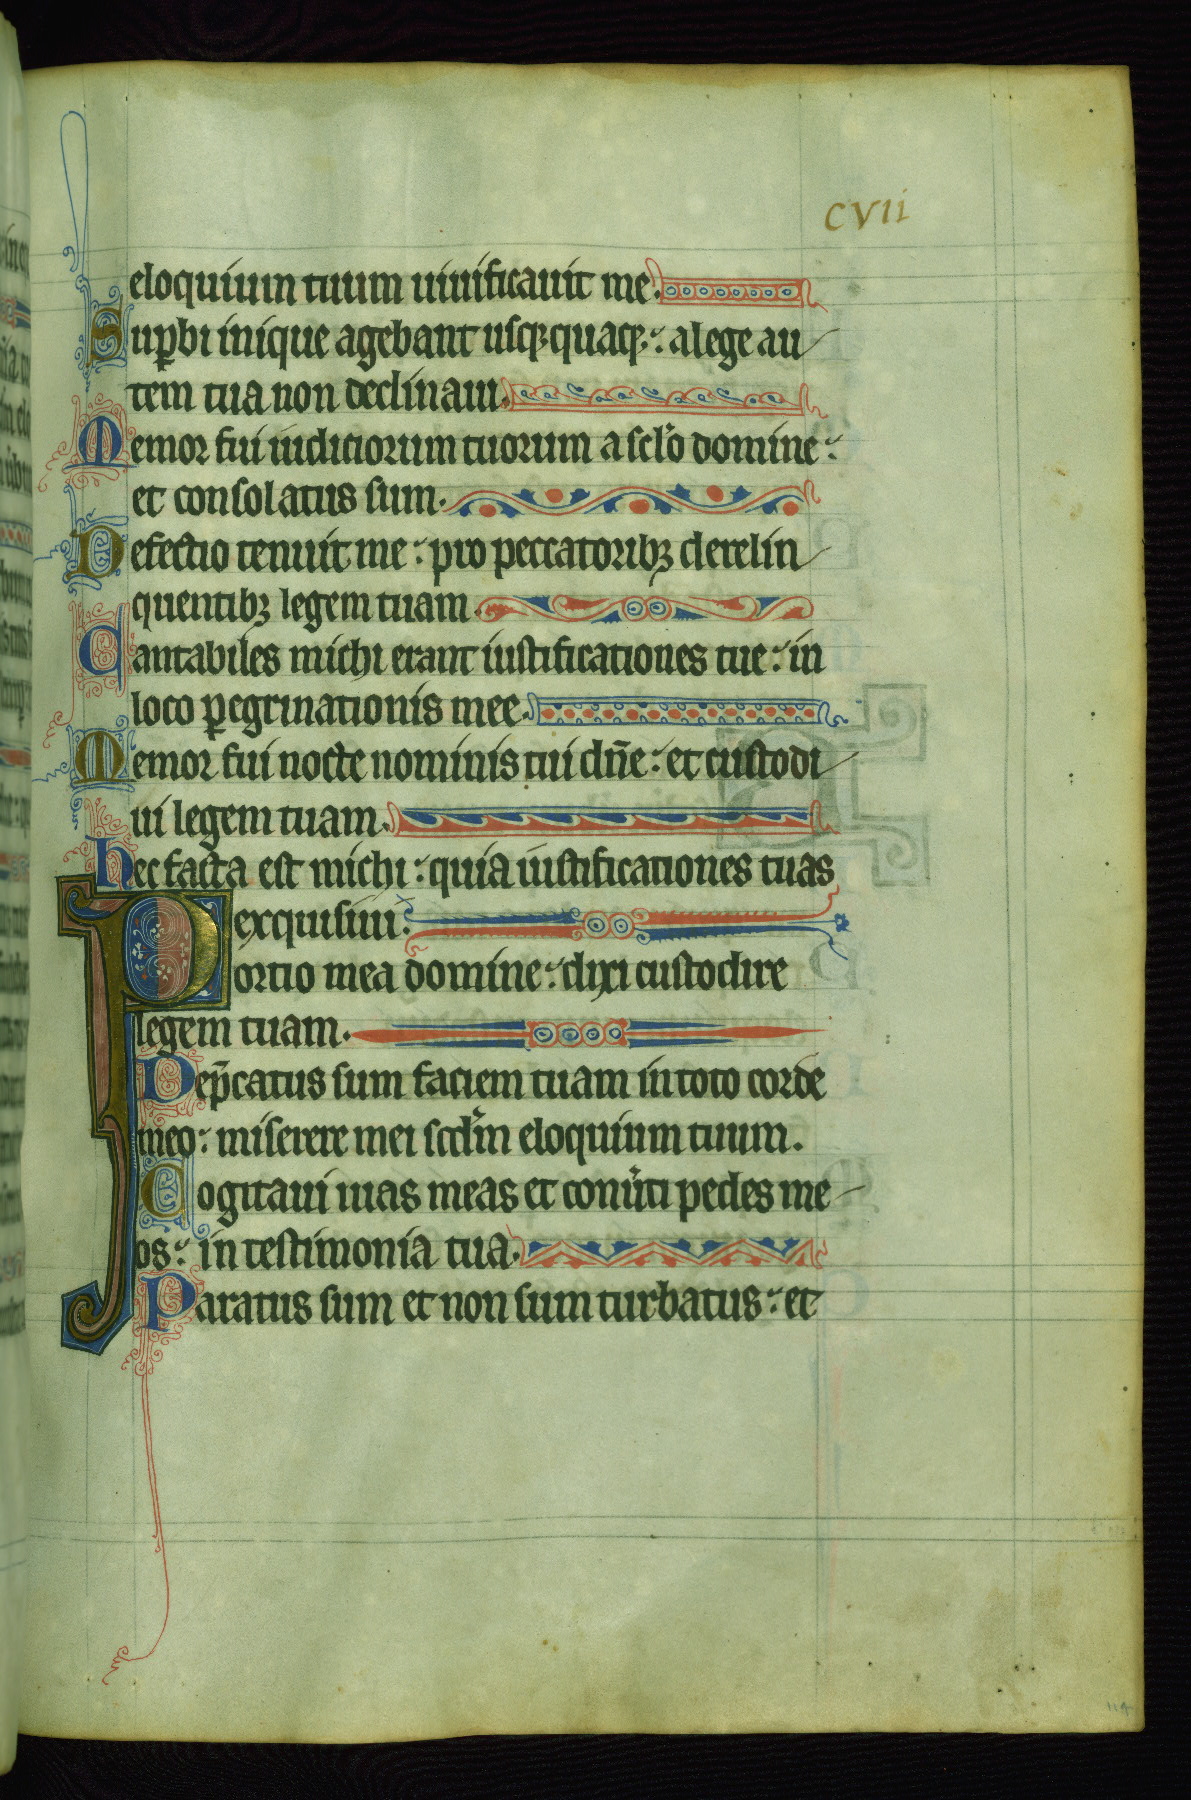 cvii
eloquium tuum uiuificauit me.
Sup̱bi inique agebant usq;quaq;: a lege au
tem tua non declinaui.
Memor fui iudiciorum tuorum a sc̄lo domine:
et consolatus sum.
Defectio tenuit me: pro peccatorib; derelin
quentib; legem tuam.
Cantabiles michi erant iustificationes tue: in
loco p̱egrinationis mee.
Memor fui nocte nominis tui dn̄e: et custodi
ui legem tuam.
Hec facta est michi: quia iustificationes tuas
exquisiui:
Portio mea domine: dixi custodire
legem tuam.
Dep̄catus sum faciem tuam in toto corde
meo: miserere mei scd̄m eloquium tuum.
Cogitaui uias meas et conu̓ti pedes me
os: in testimonia tua.
Paratus sum et non sum turbatus: et
114